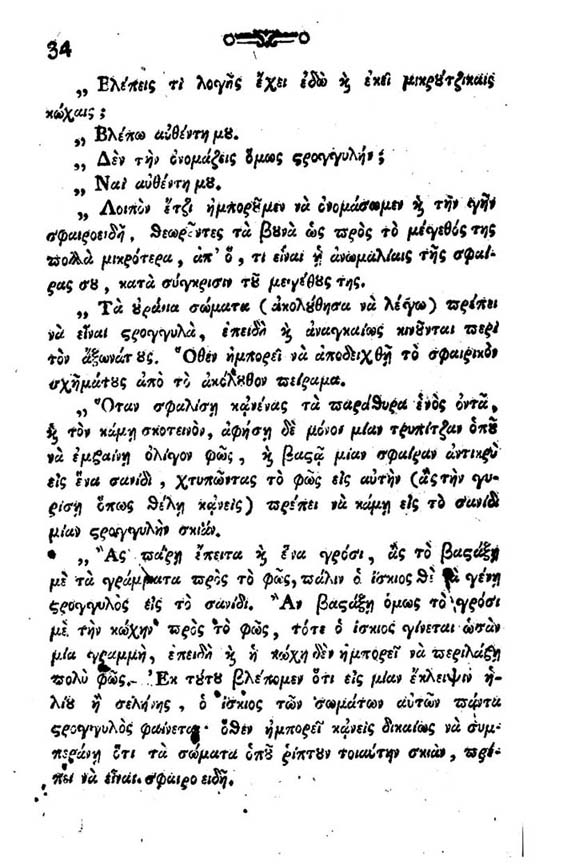 34
„ Βλέπεις τί λογῆς ἔχει ἐδῶ ϗ ἐκεῖ μικρȣ́τζικαις
κώχαις ;
„ Βλέπω αὐθέντη μȣ.
„ Δὲν τὴν ὀνομάζεις ὅμως ϛρογγυλήν ;
„ Ναὶ αὐθέντη μȣ.
„ Λοιπὸν ἔτζι ἠμπορȣ͂μεν νὰ ὀνομάσωμεν ϗ τὴν γῆν
σφαιροειδῆ, θεωρȣ͂ντες τὰ βȣνὰ ὡς πρὸς τὸ μέγεθός της
πολλὰ μικρότερα, ἀπ' ὅ, τι εἶναι ᾑ ἀνωμαλίαις τῆς σφαί-
ρας σȣ, κατὰ σύγκρισιν τȣ͂ μεγέθȣς της.
„ Τὰ ȣ̓ράνια σώματα (ἀκολȣ́θησα νὰ λέγω) πρέπει
νὰ εἶναι ϛρογγυλὰ, ἐπειδὴ ϗ ἀναγκαίως κινȣ͂νται περὶ
τὸν ἄξωνάτȣς. Ὅθεν ἠμπορεῖ νὰ ἀποδειχθῇ τὸ σφαιρικὸν
σχῆμάτȣς ἀπὸ τὸ ἀκόλȣθον πείραμα.
„ Ὅταν σφαλίσῃ κᾀνένας τὰ παράθυρα ἑνὸς ὀντᾶ,
ϗ τὸν κάμῃ σκοτεινὸν, ἀφήσῃ δὲ μόνον μίαν τρυπίτζαν ὁπȣ͂
νὰ ἐμβαίνῃ ὀλίγον φῶς, ϗ βαϛᾷ μίαν σφαῖραν ἀντικρὺ
εἰς ἕνα σανίδι, χτυπῶντας τὸ φῶς εἰς αὐτὴν (ἂς τὴν γυ-
ρίσῃ ὅπως θέλῃ κᾀνεὶς) πρέπει νὰ κάμῃ εἰς τὸ σανίδι
μίαν ϛρογγυλὴν σκιάν.
„ Ἂς πάρῃ ἔπειτα ϗ ἕνα γρόσι, ἂς τὸ βαϛάξῃ
μὲ τὰ γράμματα πρὸς τὸ φῶς, πάλιν ὁ ἴσκιος θὲ νὰ γένῃ
ϛρογγυλὸς εἰς τὸ σανίδι. Ἂν βαϛάξῃ ὅμως τὸ γρόσι
μὲ τὴν κώχην πρὸς τὸ φῶς, τότε ὁ ἴσκιος γίνεται ὡσὰν
μία γραμμὴ, ἐπειδὴ ϗ ἡ κώχη δὲν ἠμπορεῖ νὰ περιλάβῃ
πολὺ φῶς. Ἐκ τȣ́τȣ βλέπομεν ὅτι εἰς μίαν ἔκλειψιν ἡ-
λίȣ ἢ σελήνης, ὁ ἴσκιος τῶν σωμάτων αὐτῶν πάντα
ϛρογγυλὸς φαίνεται· ὅθεν ἠμπορεῖ κᾀνεὶς δικαίως νὰ συμ-
περάνῃ ὅτι τὰ σώματα ὁπȣ͂ ῥίπτȣν τοιαύτην σκιὰν, πρέ-
πει νὰ εἶναι σφαιροειδῆ.